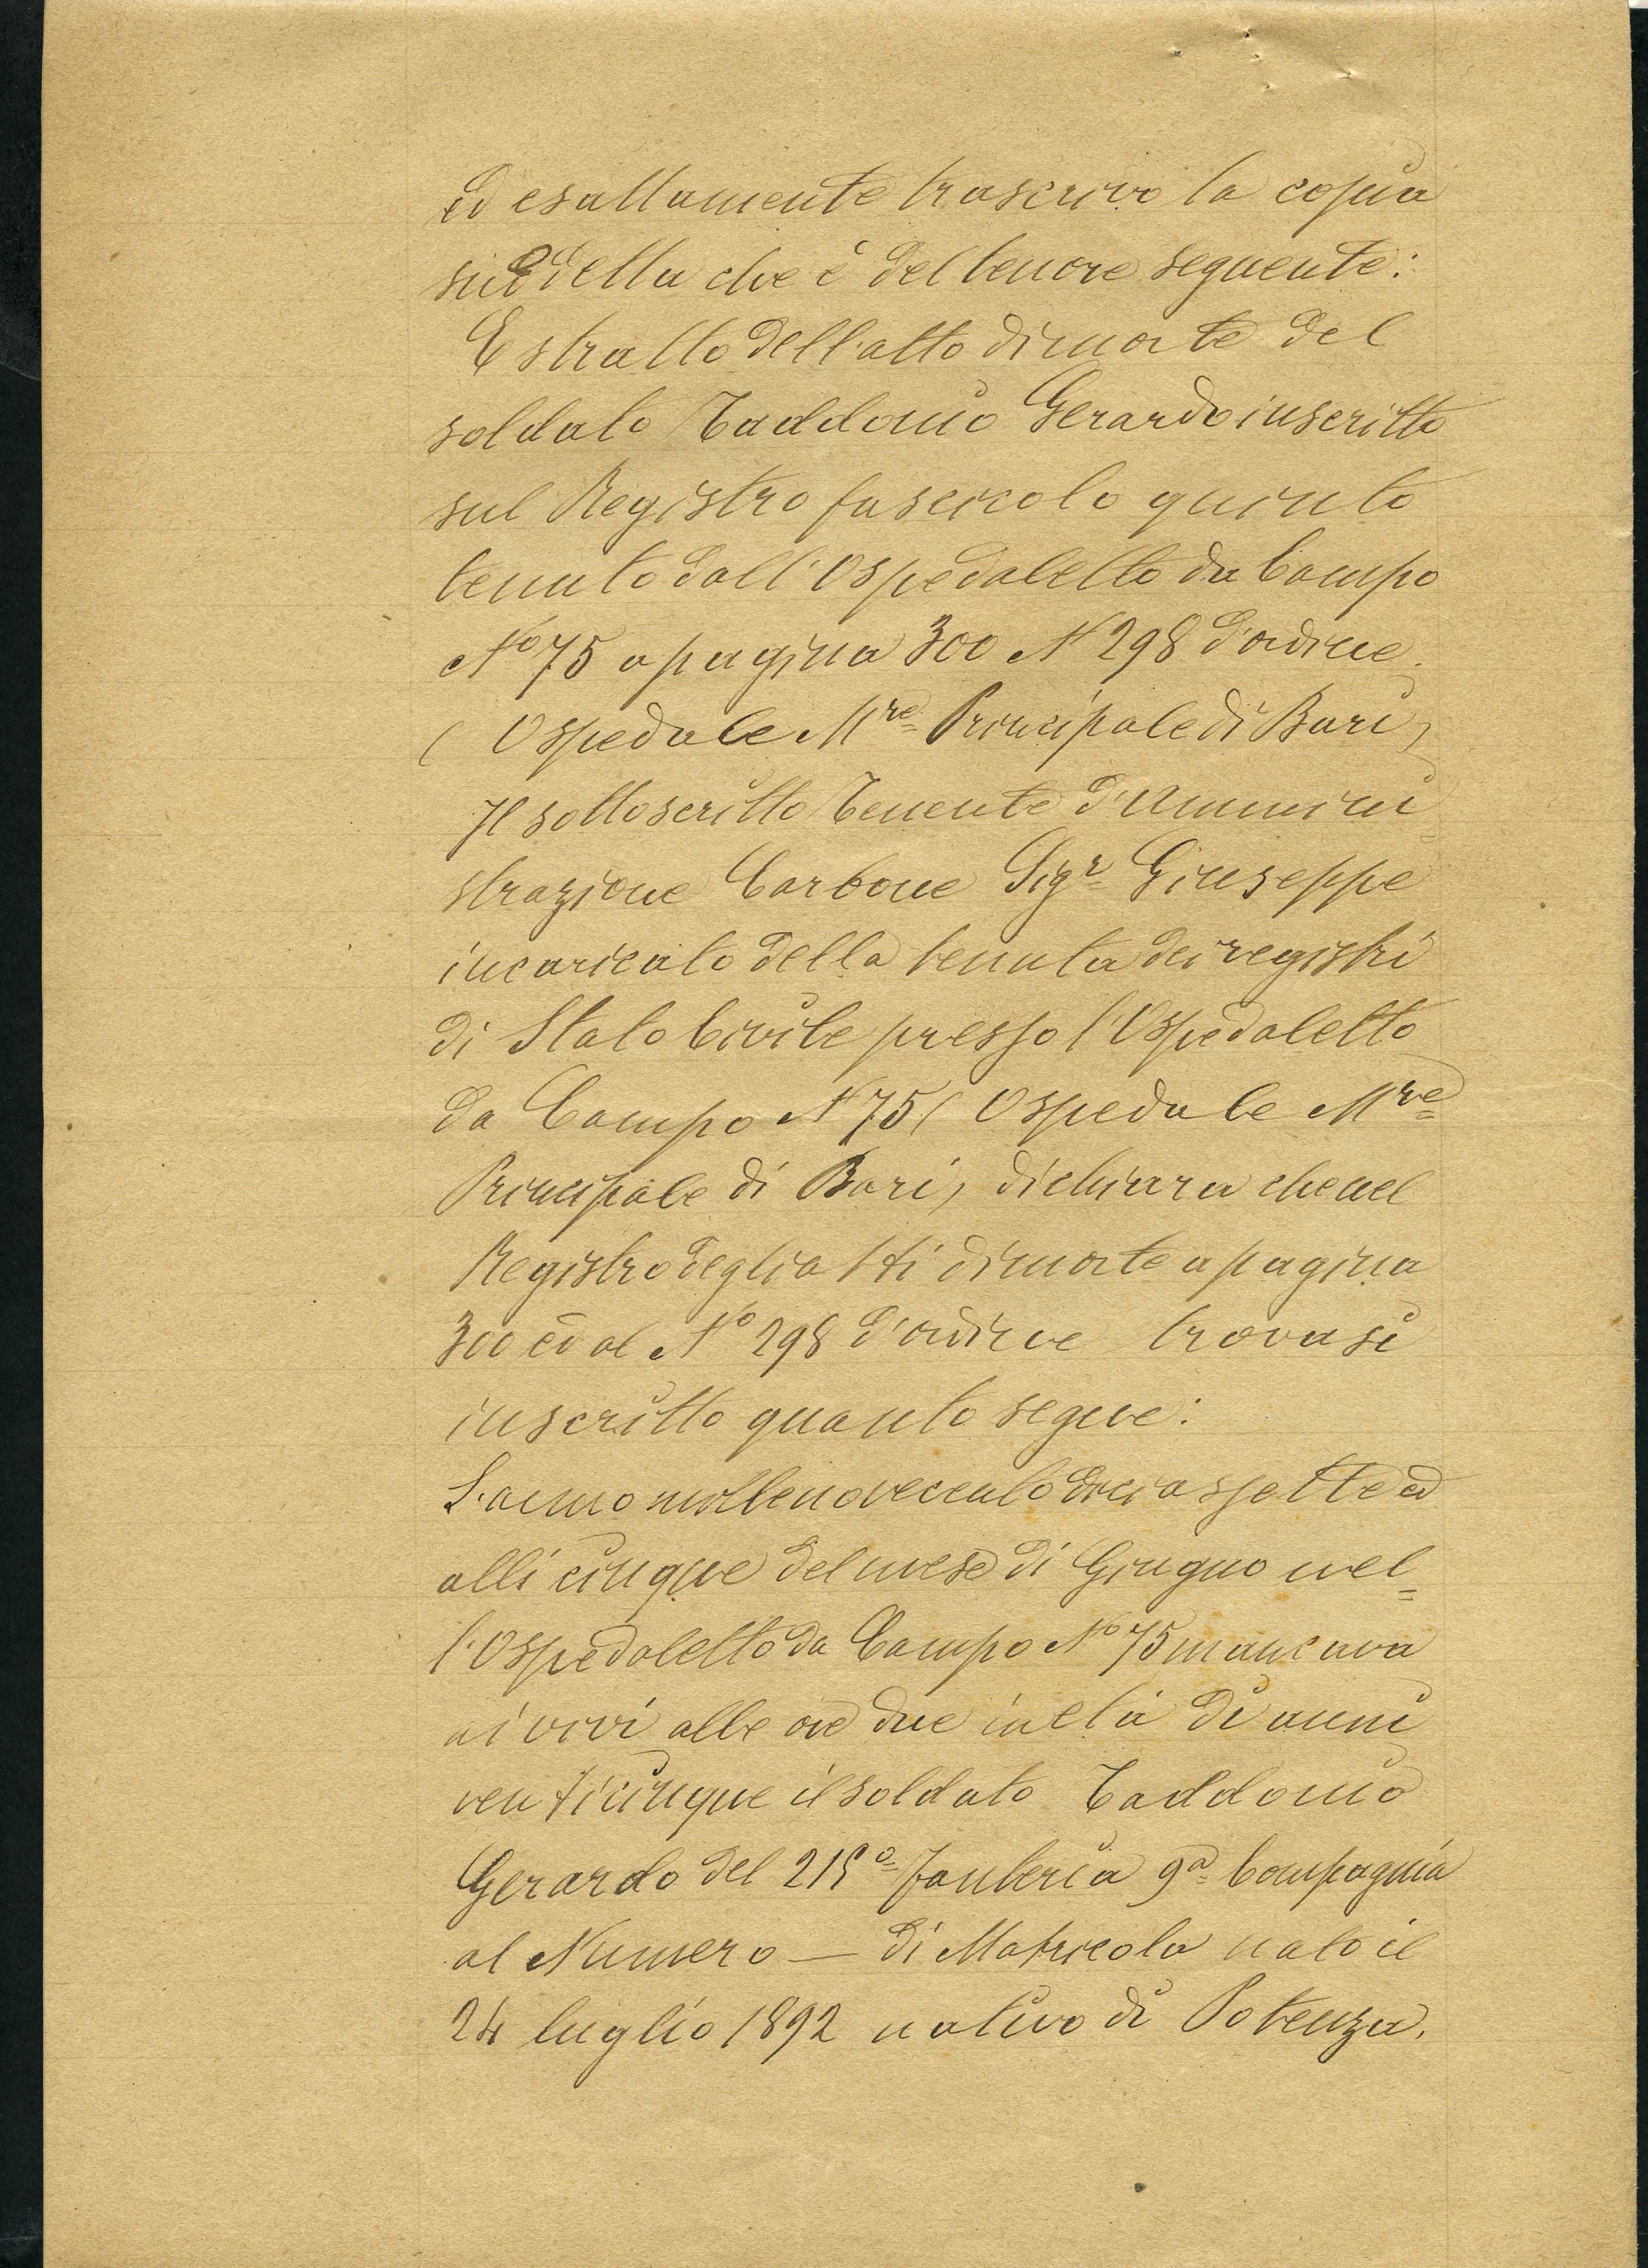 ed esattamente trascrivo la copia
suddetta che è del tenore seguente:
Estratto dell'atto di morte del
soldato Taddonio Gerardo inscritto
sul Registro fascicolo quinto
tenuto dall'Ospedaletto da Campo
N° 75 a pagina 300 N 298 d'ordine.
(Ospedale Mre Principale di Bari)
Il sottoscritto Tenente d'Ammini=
strazione Carbone Sigr Giuseppe
incaricato della tenuta dei registri
di Stato Civile presso l'Ospedaletto
da Campo N 75 (Ospedale Mre
Principale di Bari) dichiara che nel
Registro degli atti di morte a pagina
300 ed al N° 298 d'ordine trovasi
inscritto quanto segue:
L'anno millenovecentodiciassette ed
alli cinque del mese di Giugno nel=
l'Ospedaletto da Campo N° 75 mancava
ai vivi alle ore due in età di anni
venticinque il soldato Taddonio
Gerardo del 215° Fanteria 9a Compagnia
al Numero — di Matricola nato il
24 luglio 1892 nativo di Potenza.